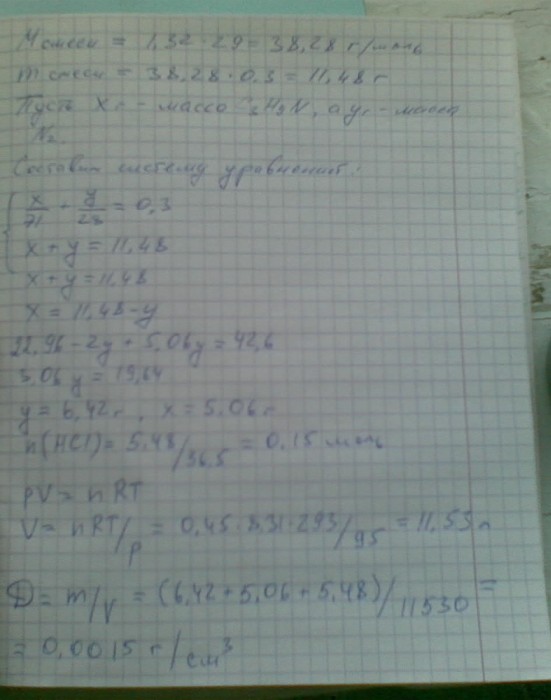 M смеси = 1,32 · 29 = 38,28 г/моль
m смеси = 38,28 · 0,3 = 11,48 г
Пусть x г - масса C₃H₉N, а y г - масса
N₂.
Составим систему уравнений:
x/71 + y/28 = 0,3
x + y = 11,48
x + y = 11,48
x = 11,48 - y
22,96 - 2y + 5,06y = 42,6
3,06 y = 19,64
y = 6,42 г, x = 5,06 г
n(HCl) = 5,48/36,5 = 0,15 моль
pV = nRT
V = nRT/p = 0,45 · 8,31 · 293/95 = 11,53 л
D = m/V = (6,42 + 5,06 + 5,48)/11530 =
= 0,0015 г/см³